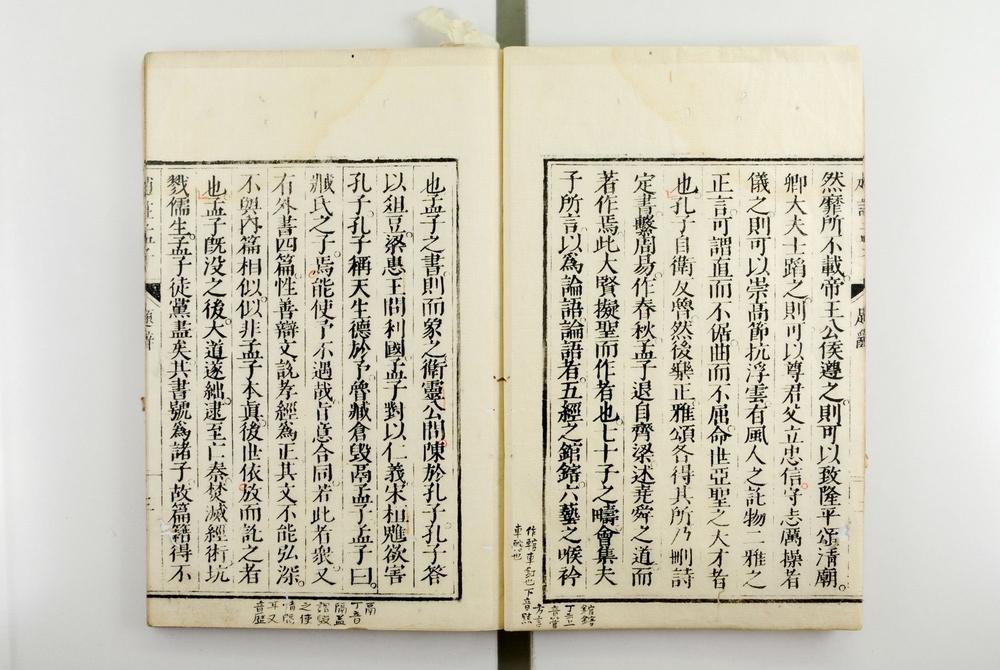 然靡所不載帝王公侯遵之則可以致隆平頌清廟
卿大夫士蹈之則可以尊君父立忠信守志厲操者
儀之則可以崇高節抗浮雲有風人之託物二雅之
正言可謂直而不倨曲而不屈命世亞聖之大才者
也孔子自衛反魯然後樂正雅頌各得其所乃刪詩
定書繫周易作春秋孟子退自齊梁述堯舜之道而
著作焉此大賢擬聖而作者也七十子之疇會集夫
子所言以為論語論語者五經之錧鎋六藝之喉衿
也孟子之書則而象之衛靈公問陳於孔子孔子答
以俎豆梁惠王問利國孟子對以仁義宋桓魋欲害
孔子孔子稱天生德於予魯臧倉毀鬲孟子孟子曰
臧氏之子焉能使予不遇哉旨意合同若此者眾又
有外書四篇性善辯文說孝經為正其文不能弘深
不與內篇相似似非孟子本真後世依放而託之者
也孟子既沒之後大道遂絀逮至亡秦焚滅經術坑
戮儒生孟子徒黨盡矣其書號為諸子故篇籍得不
題辭
錧鎋
丁云上
音管
下音黠
鬲
丁音
隔蓋
謂毀
之使
情隔
耳又
音歷